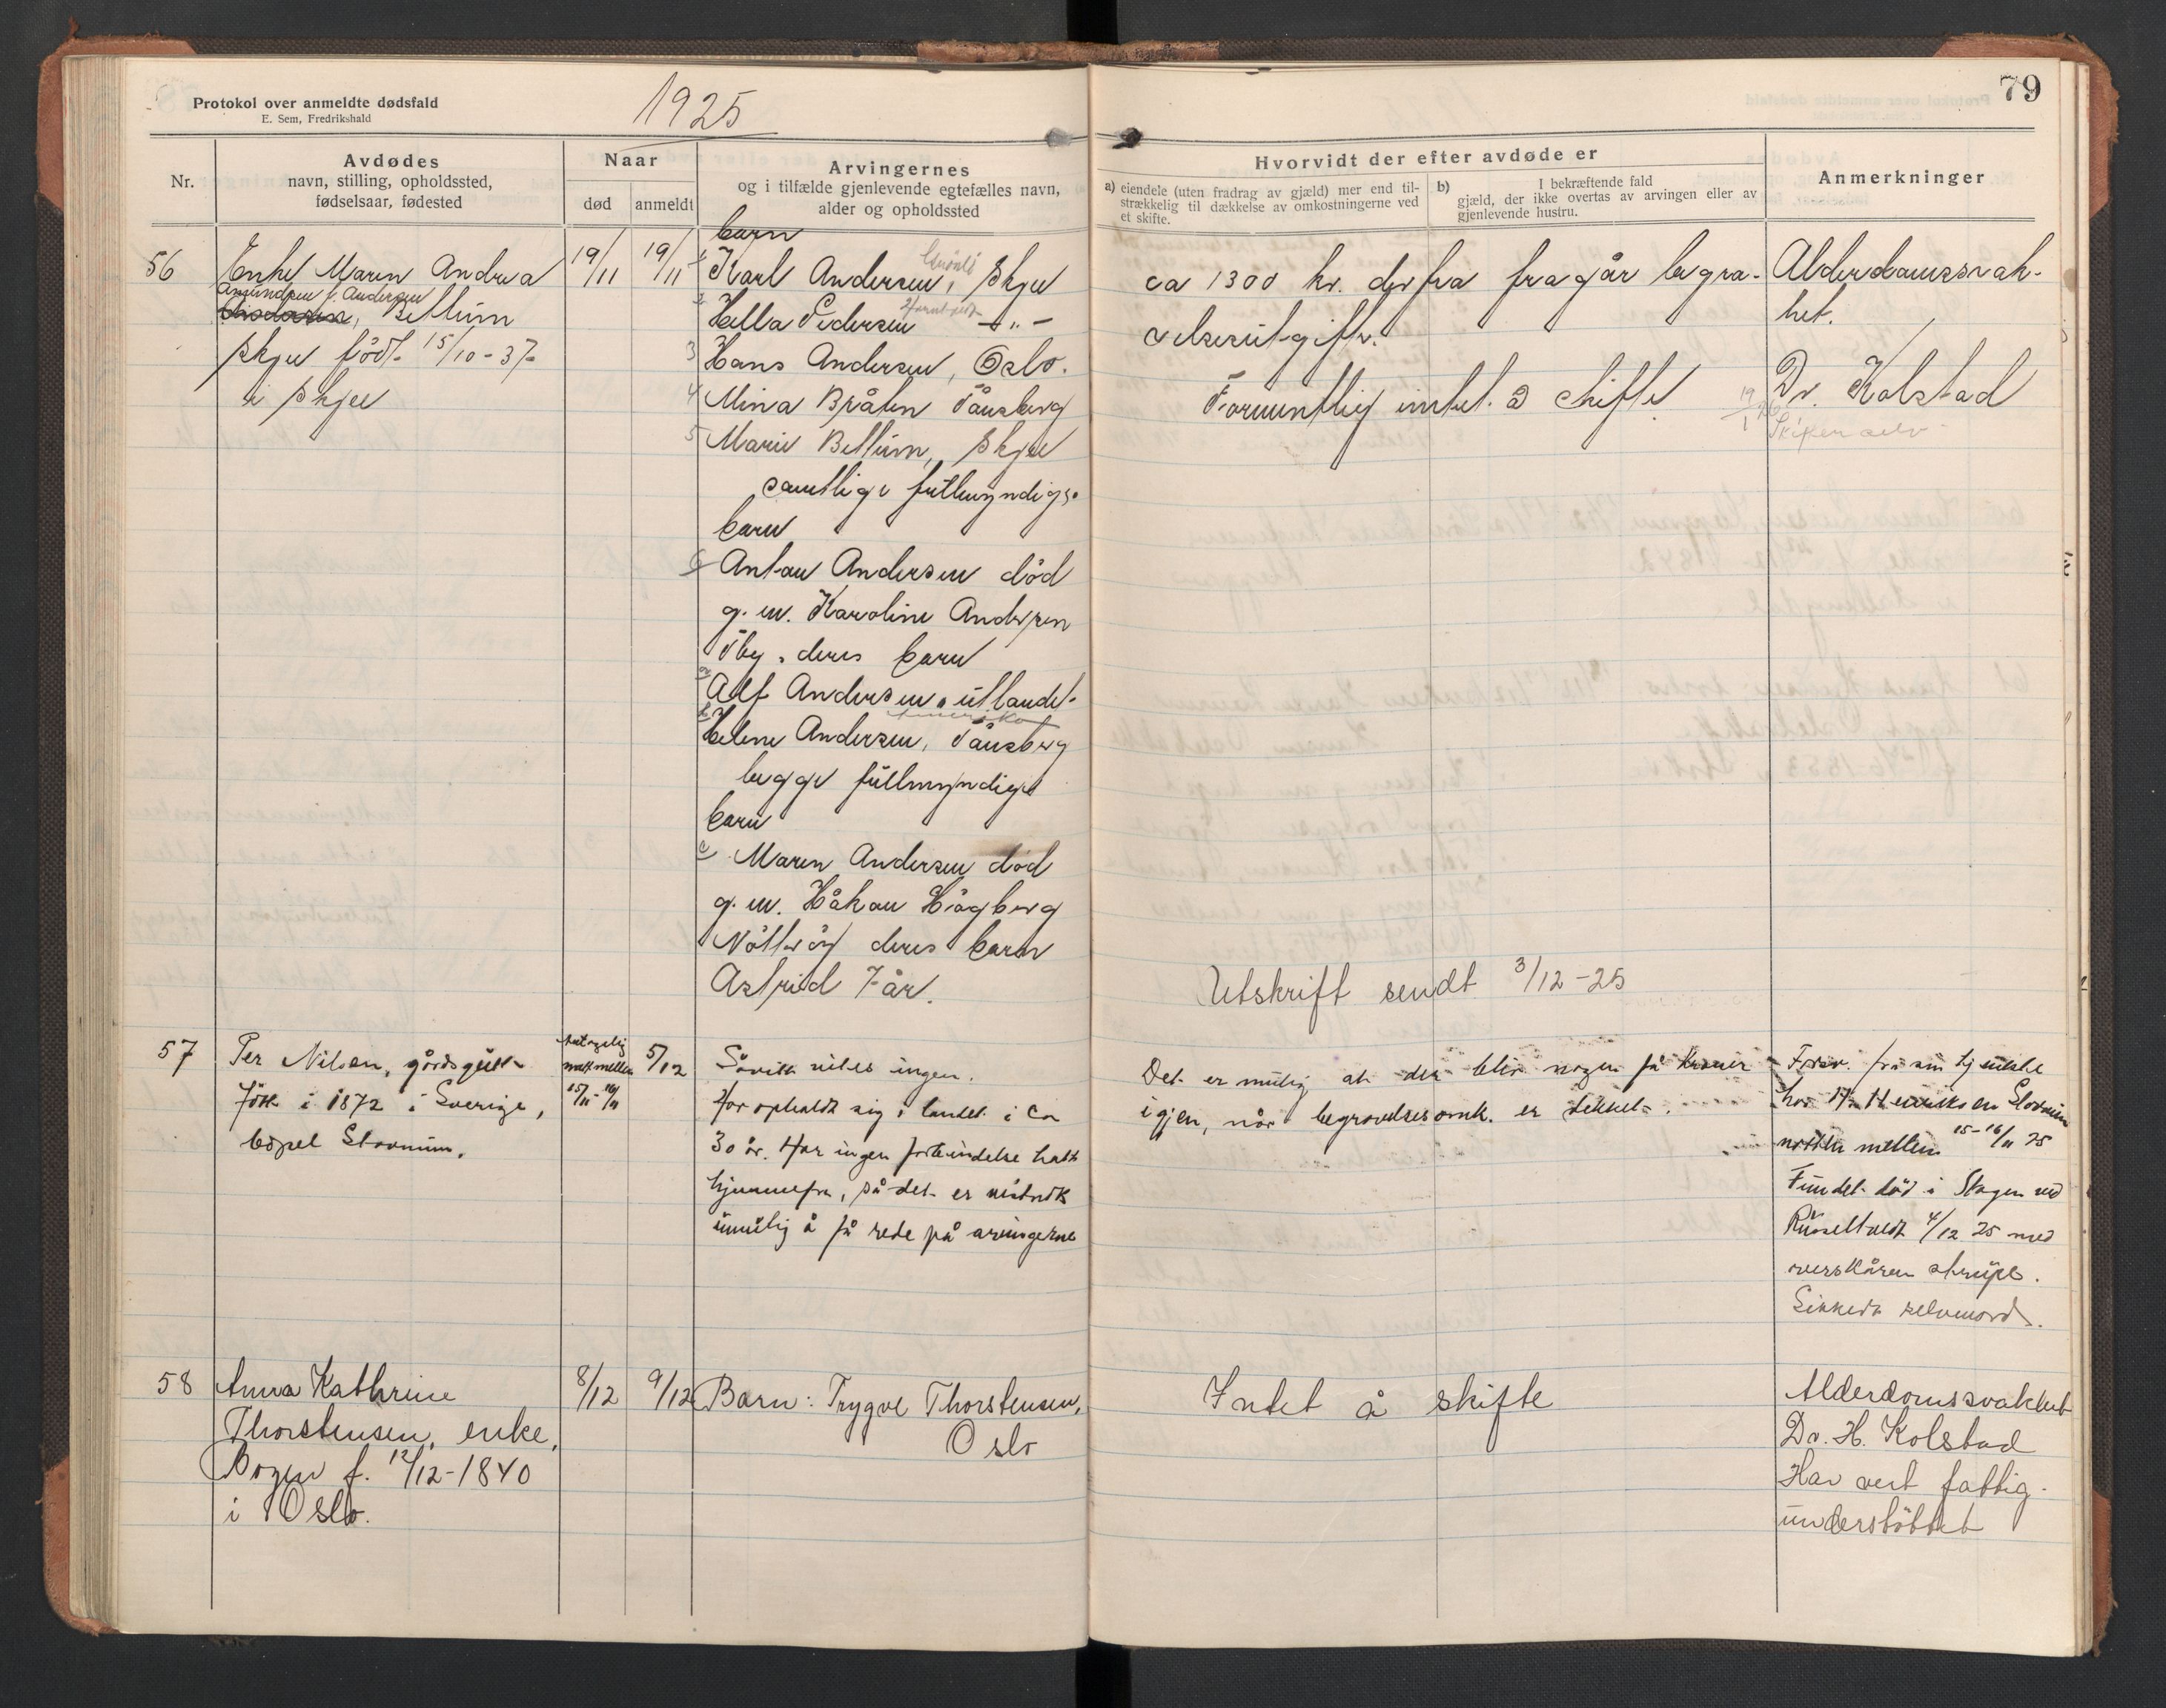 Protokol over anmeldte dødsfald
E. Sem, Fredrikshald
1925
79
Nr.
Avdødes
navn, stilling, opholdssted,
fødselsaar, fødested
Naar
død
anmeldt
Arvingernes
og i tilfælde gjenlevende egtefælles navn,
alder og opholdssted
Hvorvidt der efter avdøde er
a) eiendele (uten fradrag av gjæld) mer end til-
strækkelig til dækkelse av omkostningerne ved
et skifte.
b) I bekræftende fald
gjæld, der ikke overtas av arvingen eller av
gjenlevende hustru.
Anmerkninger
56
Enke Maren Andrea
Amundsen f. Andersen
Bettum
Skjee født 15/10-37
i Skjee
19/11
19/11
barn
1 Karl Andersen, Skjee
2 Hella Pedersen —„—
3 Hans Andersen, Oslo.
4 Mina Bråten Tønsberg
5 Marie Bettum, Skjee
samtlige fullmyndige.
barn
6 Anton Andersen død
g. m. Karoline Andersen
Tbg. deres barn
a Alf Andersen, utlandet
b Helene Andersen, Tønsberg
begge fullmyndige
barn
c Maren Andersen død
g. m. Håkon Høgberg
Nøtterøy deres barn
Astrid 7 år.
ca 1300 kr. derfra fragår begra-
velsesutgifter.
Formentlig intet å skifte
Utskrift sendt 3/12-25
Alderdomssvak-
het.
Dr. Kolstad
19/1 26
Skifter selv
57
Per Nilsen, gårdsgutt
Født i 1872 i Sverige,
bopel Stovnum.
Antagelig
natt mellem
15/11-16/11
5/12
Såvitt vites ingen.
Har opholdt sig i landet i ca
30 år. Har ingen forbindelse hatt
hjemmefra, så det er visstnok
umulig å få rede på arvingerne
Det er mulig at der blir nogen få kroner
igjen, når begravelsesomk. er dekket.
Forsv. fra sin tjeneste
hos H. Henriksen Stovnum
natten mellem 15-16/11 25
Fundet død i Skogen ved
4/12 25 med
overskåren strupe.
Sikkert selvmord.
58
Anna Kathrine
Thorstensen, enke,
f. 12/12-1840
i Oslo.
8/12
9/12
Barn: Trygve Thorstensen,
Oslo
Intet å skifte
Alderdomssvakhet
Dr. H. Kolstad
Har vert fattig-
understøttet